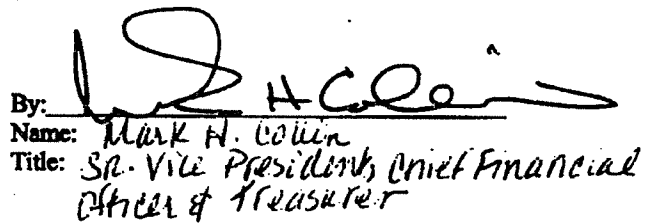 By: Mark H Collin
Name: Mark H. Collin
Title: SR. Vice President, Chief Financial
Officer & Treasurer